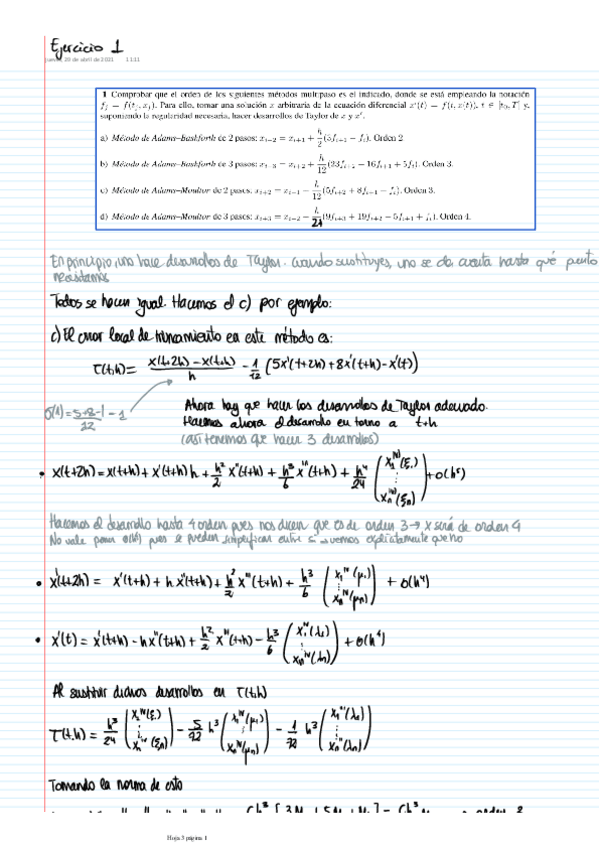 Ejercicio 1
jueves, 29 de abril de 2021 11:11
1 Comprobar que el orden de los siguientes métodos multipaso es el indicado, donde se está empleando la notación
f_j = f(t_j, x_j). Para ello, tomar una solución x arbitraria de la ecuación diferencial x'(t) = f(t, x(t)), t ∈ [t_0, T] y,
suponiendo la regularidad necesaria, hacer desarrollos de Taylor de x y x'.
a) Método de Adams–Bashforth de 2 pasos: x_{i+2} = x_{i+1} + h/2 (3f_{i+1} − f_i). Orden 2
b) Método de Adams–Bashforth de 3 pasos: x_{i+3} = x_{i+2} + h/12 (23f_{i+2} − 16f_{i+1} + 5f_i). Orden 3.
c) Método de Adams–Moulton de 2 pasos: x_{i+2} = x_{i+1} + h/12 (5f_{i+2} + 8f_{i+1} − f_i). Orden 3.
d) Método de Adams–Moulton de 3 pasos: x_{i+3} = x_{i+2} + h/24 (9f_{i+3} + 19f_{i+2} − 5f_{i+1} + f_i). Orden 4.
En principio, uno hace desarrollos de Taylor. Cuando sustituyes, uno se da cuenta hasta qué punto
necesitamos
Todos se hacen igual. Hacemos el c) por ejemplo:
c) El error local de truncamiento en este método es:
τ(t,h) = (x(t+2h) − x(t+h))/h − 1/12 (5x'(t+2h) + 8x'(t+h) − x'(t))
σ(1) = (5+8−1)/12 = 1
Ahora hay que hacer los desarrollos de Taylor adecuado.
Hacemos ahora el desarrollo en torno a t+h
(así tenemos que hacer 3 desarrollos)
• x(t+2h) = x(t+h) + x'(t+h)h + h²/2 x''(t+h) + h³/6 x'''(t+h) + h⁴/24 (x₁^{IV}(ξ₁) ⋮ xₙ^{IV}(ξₙ)) + o(h⁵)
Hacemos el desarrollo hasta 4 orden pues nos dicen que es de orden 3 → x será de orden 4
No vale poner o(h⁴) pues se pueden simplificar entre sí
• x'(t+2h) = x'(t+h) + h x''(t+h) + h²/2 x'''(t+h) + h³/6 (x₁^{IV}(μ₁) ⋮ xₙ^{IV}(μₙ)) + o(h⁴)
• x'(t) = x'(t+h) − hx''(t+h) + h²/2 x'''(t+h) − h³/6 (x₁^{IV}(λ₁) ⋮ xₙ^{IV}(λₙ)) + o(h⁴)
Al sustituir dichos desarrollos en τ(t,h)
τ(t,h) = h³/24 (x₁^{IV}(ξ₁) ⋮ xₙ^{IV}(ξₙ)) − 5/72 h³ (x₁^{IV}(μ₁) ⋮ xₙ^{IV}(μₙ)) − 1/72 h³ (x₁^{IV}(λ₁) ⋮ xₙ^{IV}(λₙ))
Tomando la norma de esto
Hoja 3 página 1